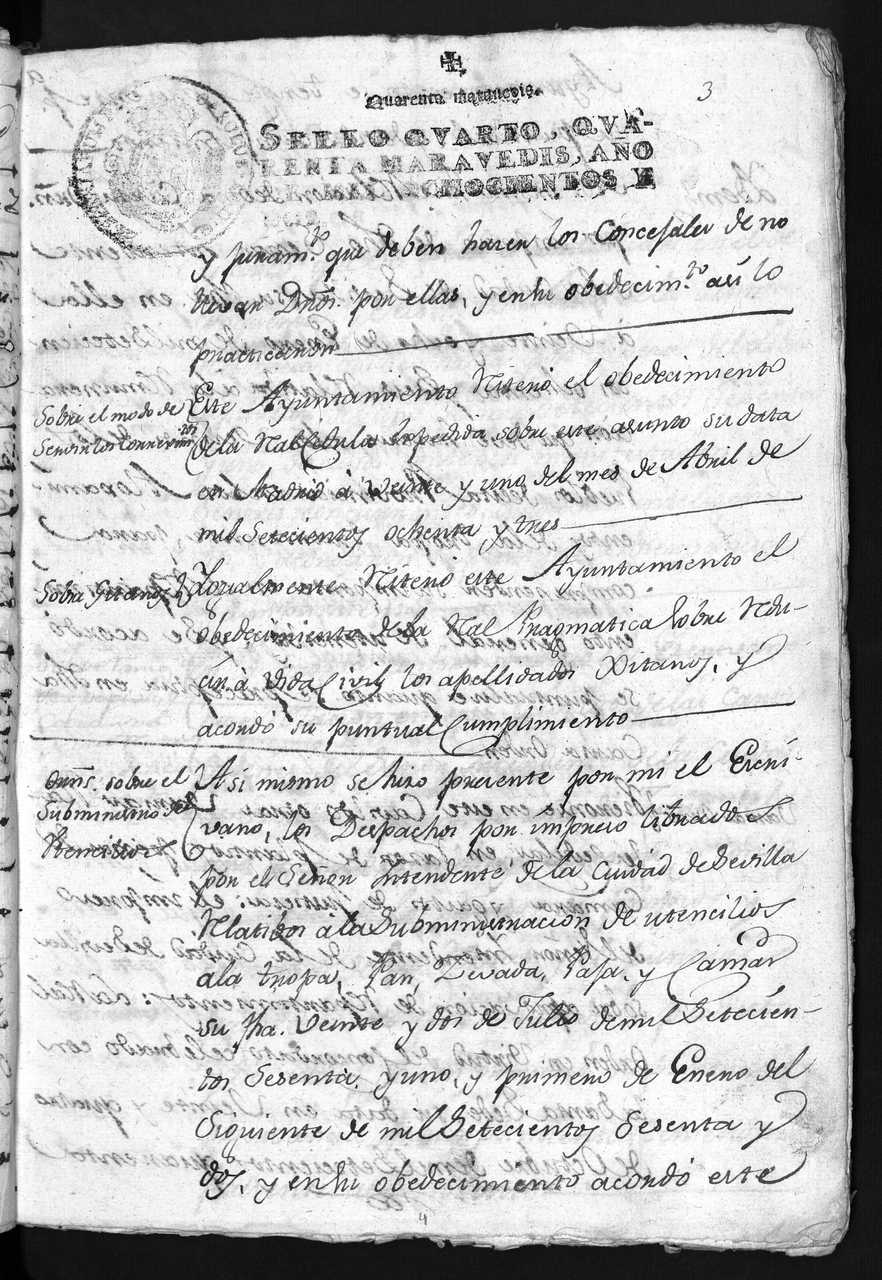 3
Quarenta maravedis.
SELLO QVARTO, QVA-
RENTA MARAVEDIS, AÑO
OCHOCIENTOS Y
y juram.to que deben hacer los Concejales de no
llevar Dros. por ellas, y en su obedecim.to asi lo
practicaron
Sobre el modo de
Servir los
Este Ayuntamiento Reiteró el obedecimiento
de la Rl. Cedula expedida sobre este asunto su data
en Madrid á Veinte y uno del mes de Abril de
mil Setecientos ochenta y tres
Sobre Gitanos
Igualmente Reiteró este Ayuntamiento el
obedecimiento de la Real Pragmatica sobre Redu-
cir á Vida Civil los apellidados Xitanos, y
acordó su puntual Cumplimiento
Orns. sobre el
Subministro de
Utencilios
Asi mismo se hizo presente por mi el Escri-
vano, los Despachos por impreso librados
por el Señor Intendente de la Ciudad de Sevilla
Relatibos á la Subministracion de utencilios
a la tropa, Pan, Zevada, Paja, y Camas
su fha. Veinte y dos de Julio de mil Setecien-
tos Sesenta y uno, y primero de Enero del
Siguiente de mil Setecientos Sesenta y
dos, y en su obedecimiento acordó este
4